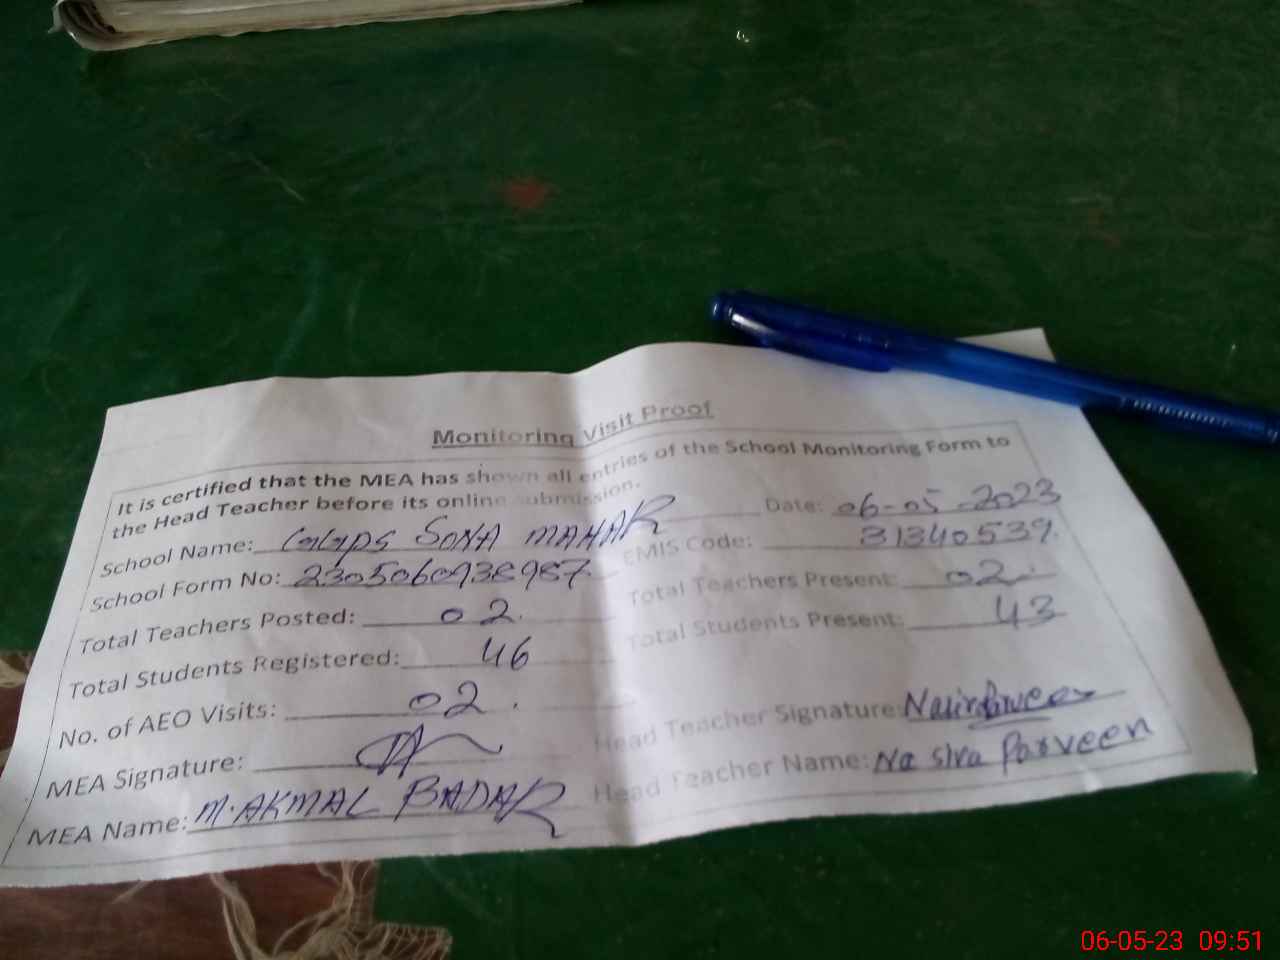 Monitoring Visit Proof
It is certified that the MEA has shown all entries of the School Monitoring Form to
the Head Teacher before its online submission.
Date: 06-05-2023
School Name: GGPS SONA MAHAR
EMIS Code: 31340539
School Form No: 2305060938987
Total Teachers Present: 02
Total Teachers Posted: 02
Total Students Present: 43
Total Students Registered: 46
No. of AEO Visits: 02
Head Teacher Signature:
MEA Signature:
Head Teacher Name: Nasira Parveen
MEA Name: M. AKMAL BADAR
06-05-23 09:51